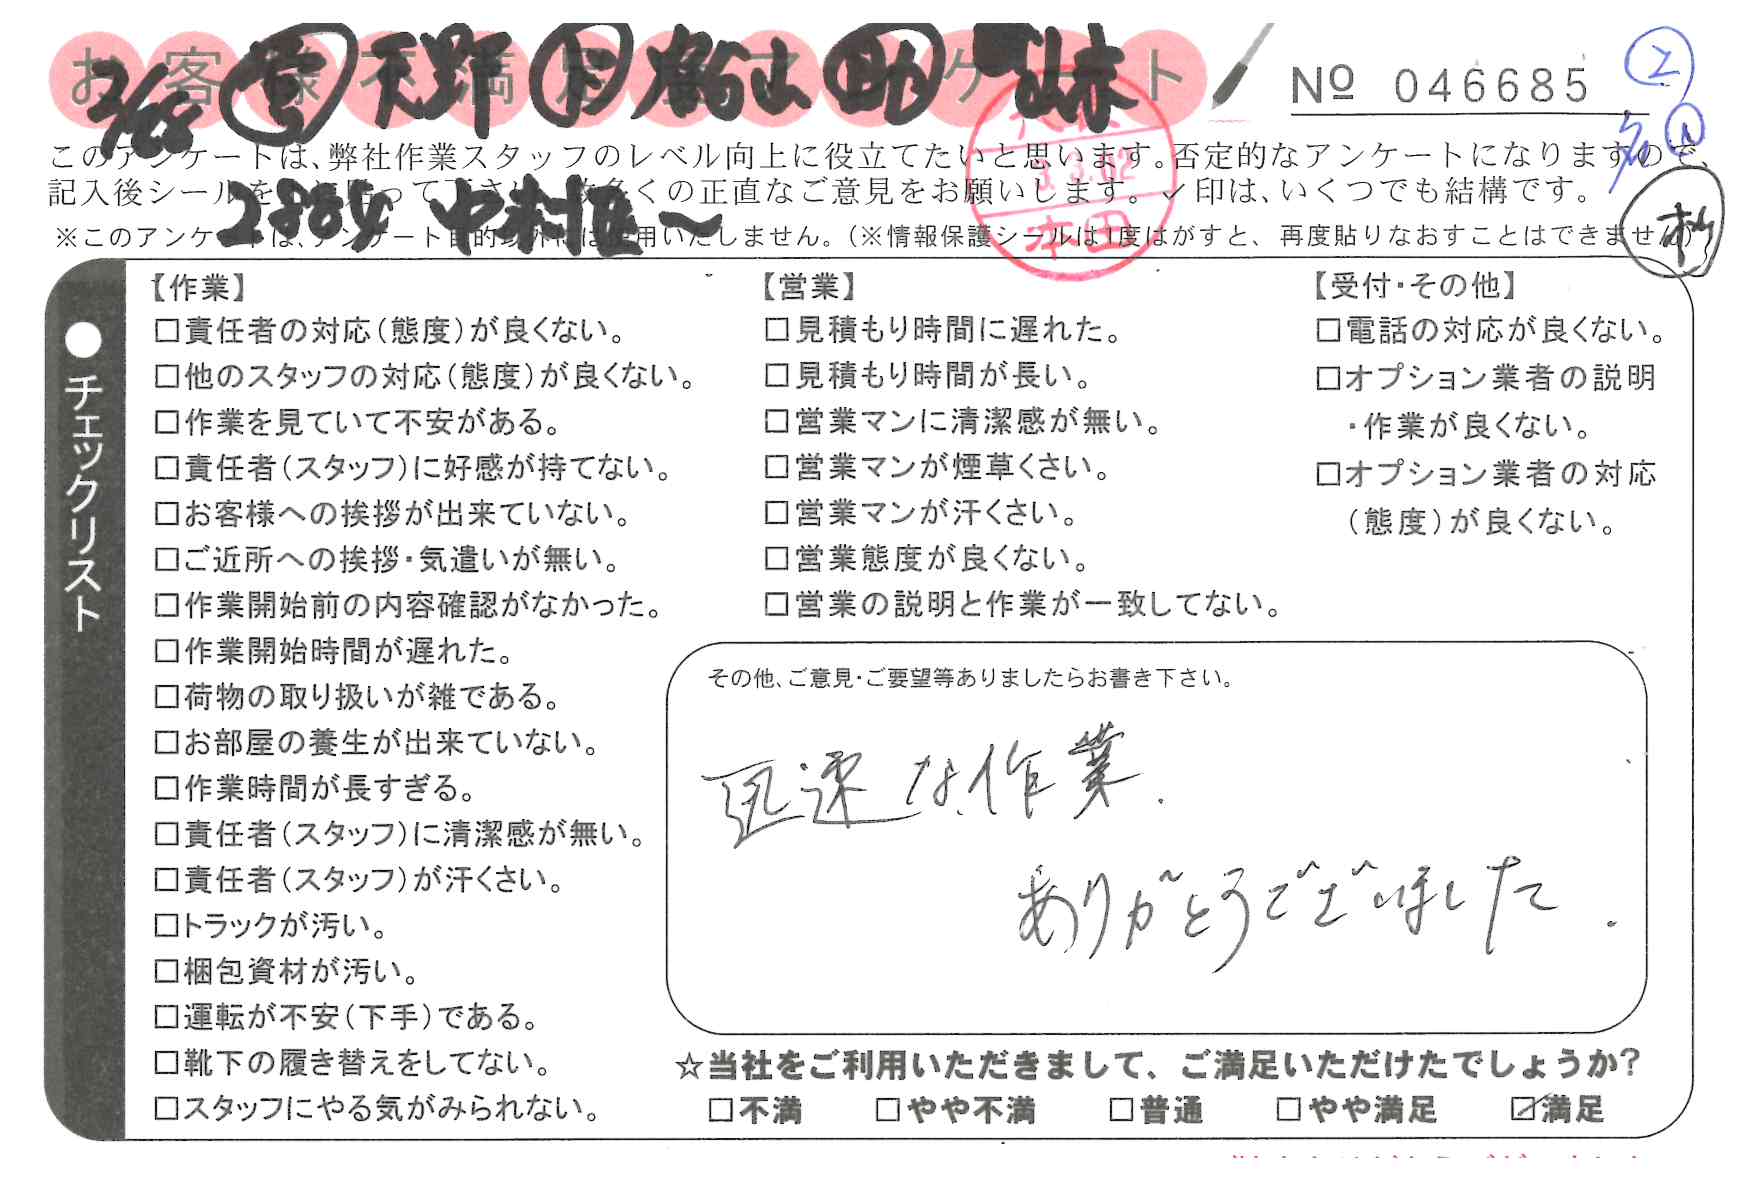 お客様不満足度アンケート
2/28 営 天野 作 助
No 046685
2
名 1
このアンケートは、弊社作業スタッフのレベル向上に役立てたいと思います。否定的なアンケートになりますので、
記入後シールを貼って下さい。数多くの正直なご意見をお願いします。✓印は、いくつでも結構です。
3.3.02
本田
2804 中村区〜
※このアンケートは、アンケート目的以外には使用いたしません。（※情報保護シールは1度はがすと、再度貼りなおすことはできません）
●チェックリスト
【作業】
□責任者の対応（態度）が良くない。
□他のスタッフの対応（態度）が良くない。
□作業を見ていて不安がある。
□責任者（スタッフ）に好感が持てない。
□お客様への挨拶が出来ていない。
□ご近所への挨拶・気遣いが無い。
□作業開始前の内容確認がなかった。
□作業開始時間が遅れた。
□荷物の取り扱いが雑である。
□お部屋の養生が出来ていない。
□作業時間が長すぎる。
□責任者（スタッフ）に清潔感が無い。
□責任者（スタッフ）が汗くさい。
□トラックが汚い。
□梱包資材が汚い。
□運転が不安（下手）である。
□靴下の履き替えをしてない。
□スタッフにやる気がみられない。
【営業】
□見積もり時間に遅れた。
□見積もり時間が長い。
□営業マンに清潔感が無い。
□営業マンが煙草くさい。
□営業マンが汗くさい。
□営業態度が良くない。
□営業の説明と作業が一致してない。
【受付・その他】
□電話の対応が良くない。
□オプション業者の説明
・作業が良くない。
□オプション業者の対応
（態度）が良くない。
その他、ご意見・ご要望等ありましたらお書き下さい。
迅速な作業.
ありがとうございました.
☆当社をご利用いただきまして、ご満足いただけたでしょうか？
□不満 □やや不満 □普通 □やや満足 ☑満足